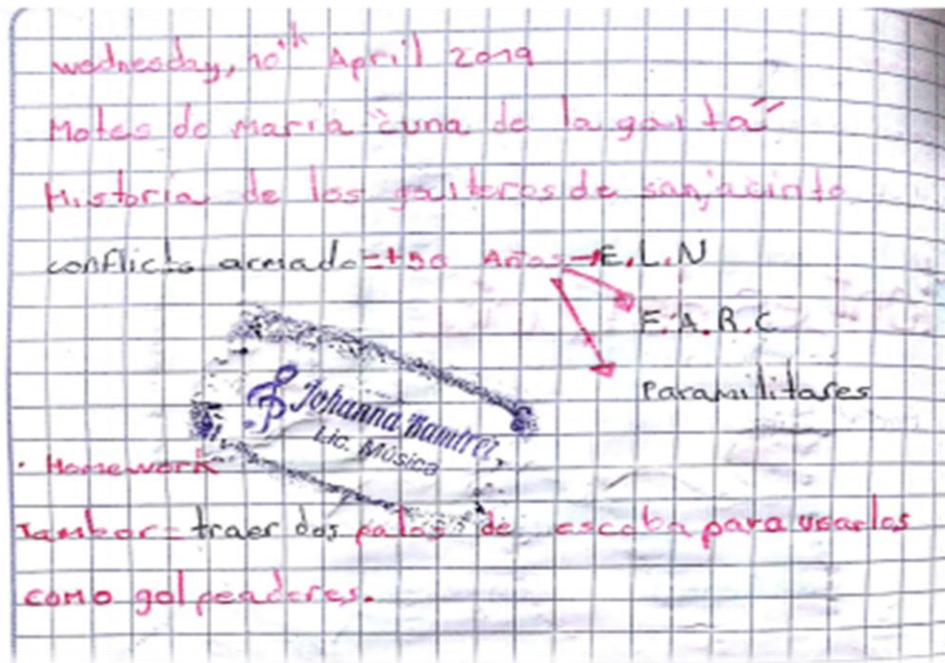 wednesday, 10th April 2019
Motes de maria "cuna de la gaita"
Historia de los gaiteros de sanjacinto
conflicto armado=+50 Años→E.L.N
F.A.R.C
Paramilitares
Johanna Ramirez
Lic. Música
· Homework
Tambor= traer dos palos de escoba para usarlos
como golpeaderes.